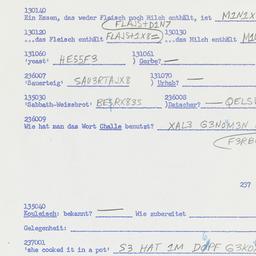 131040
Ein Essen, das weder Fleisch noch Milch enthält, ist M1N1X
FLAJS+D1N7
130120 130130
...das Fleisch enthält FLAJS+1X8= ...das Milch enthält
131060 131061
'yeast' HE55F3 ) Gerbe? —
236007 131070
'Sauerteig' SAU3RTAJX8 ) Urhab? —
135030 236008
'Sabbath-Weissbrot' BE3RX83S ) Datscher? —
236009
Wie hat man das Wort Challe benutzt? XAL3 G3NOM3N
F3RB
237
135040
Kouleisch: bekannt? — Wie zubereitet
Gelegenheit:
237001
'she cooked it in a pot' S3 HAT 1M DOPF G3KO